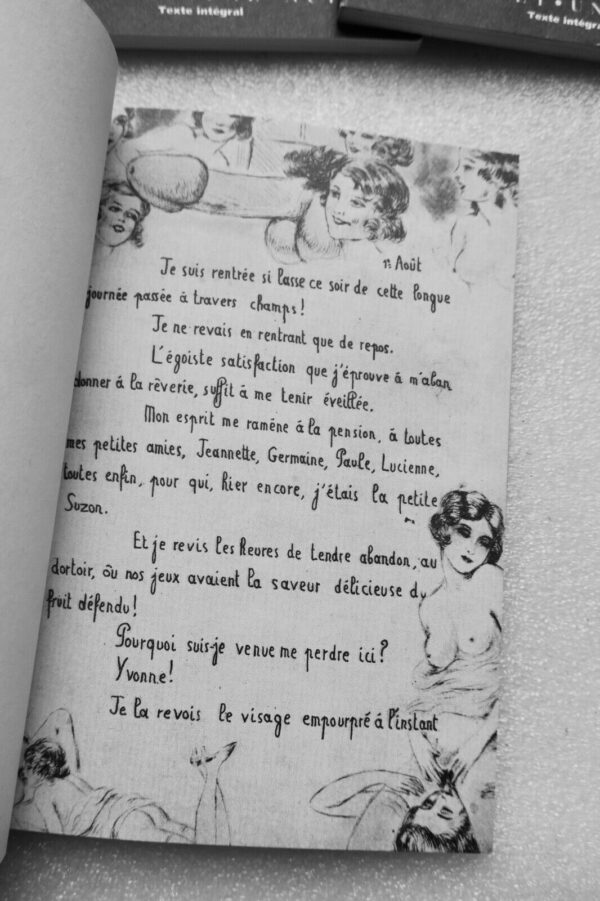 Texte intégral
Texte intégral
1r. Août
Je suis rentrée si lasse ce soir de cette longue
journée passée à travers champs!
Je ne revais en rentrant que de repos.
L'égoiste satisfaction que j'éprouve à m'aban
donner à la rèverie, suffit à me tenir éveillée.
Mon esprit me ramène à la pension, à toutes
mes petites amies, Jeannette, Germaine, Paule, Lucienne,
toutes enfin, pour qui, hier encore, j'étais la petite
Suzon.
Et je revis les heures de tendre abandon, au
dortoir, où nos jeux avaient la saveur délicieuse du
fruit défendu!
Pourquoi suis-je venue me perdre ici?
Yvonne!
Je la revois le visage empourpré à l'instant